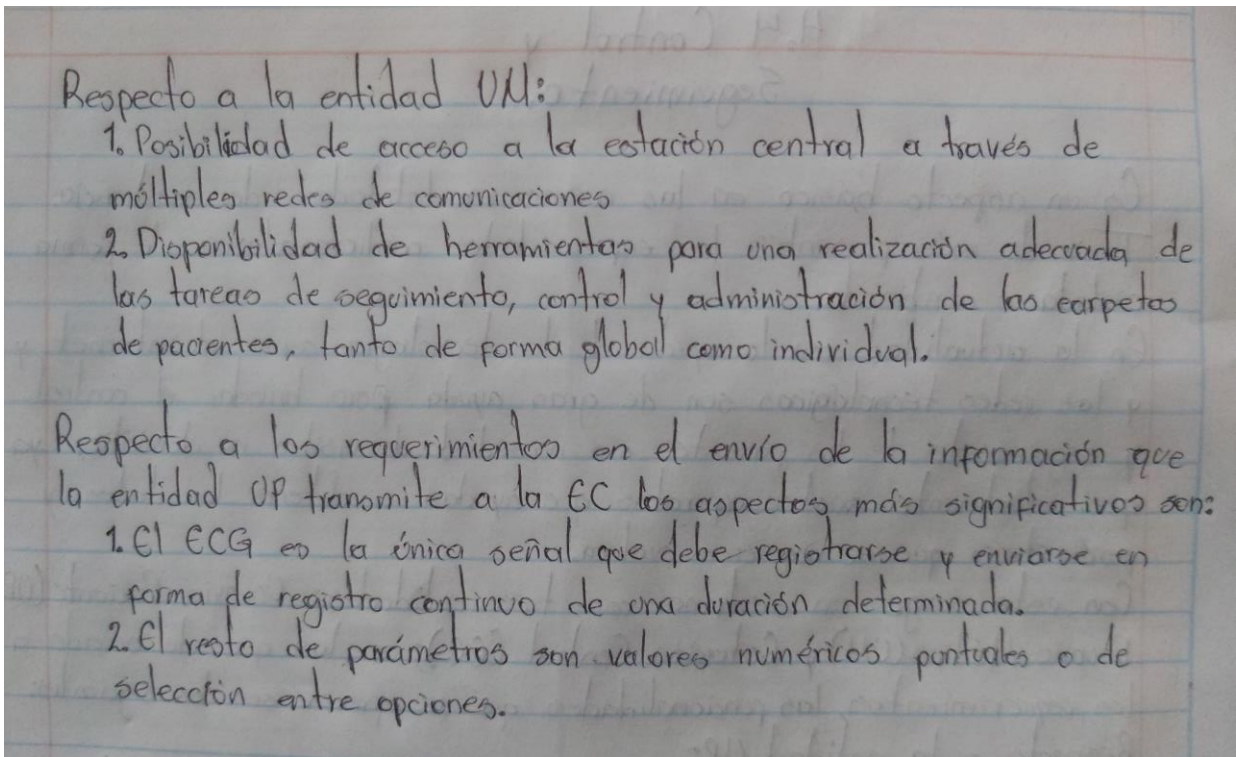 Respecto a la entidad UM:
1. Posibilidad de acceso a la estación central a través de
múltiples redes de comunicaciones
2. Disponibilidad de herramientas para una realización adecuada de
las tareas de seguimiento, control y administración de las carpetas
de pacientes, tanto de forma global como individual.
Respecto a los requerimientos en el envío de la información que
la entidad UP transmite a la EC los aspectos más significativos son:
1. El ECG es la única señal que debe registrarse y enviarse en
forma de registro continuo de una duración determinada.
2. El resto de parámetros son valores numéricos puntuales o de
selección entre opciones.